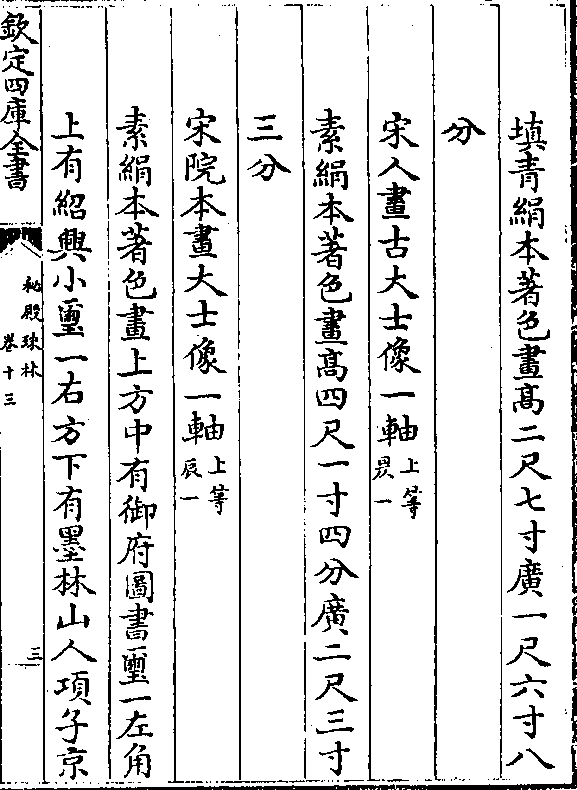 填青絹本著色畫髙二尺七寸廣一尺六寸八
分
宋人畫古大士像一軸 上等
昃一
素絹本著色畫髙四尺一寸四分廣二尺三寸
三分
宋院本畫大士像一軸 上等
辰一
素絹本著色畫上方中有御府圖書璽一左角
上有紹興小璽一右方下有墨林山人項子京
欽定四庫全書
秘殿珠林
卷十三
三